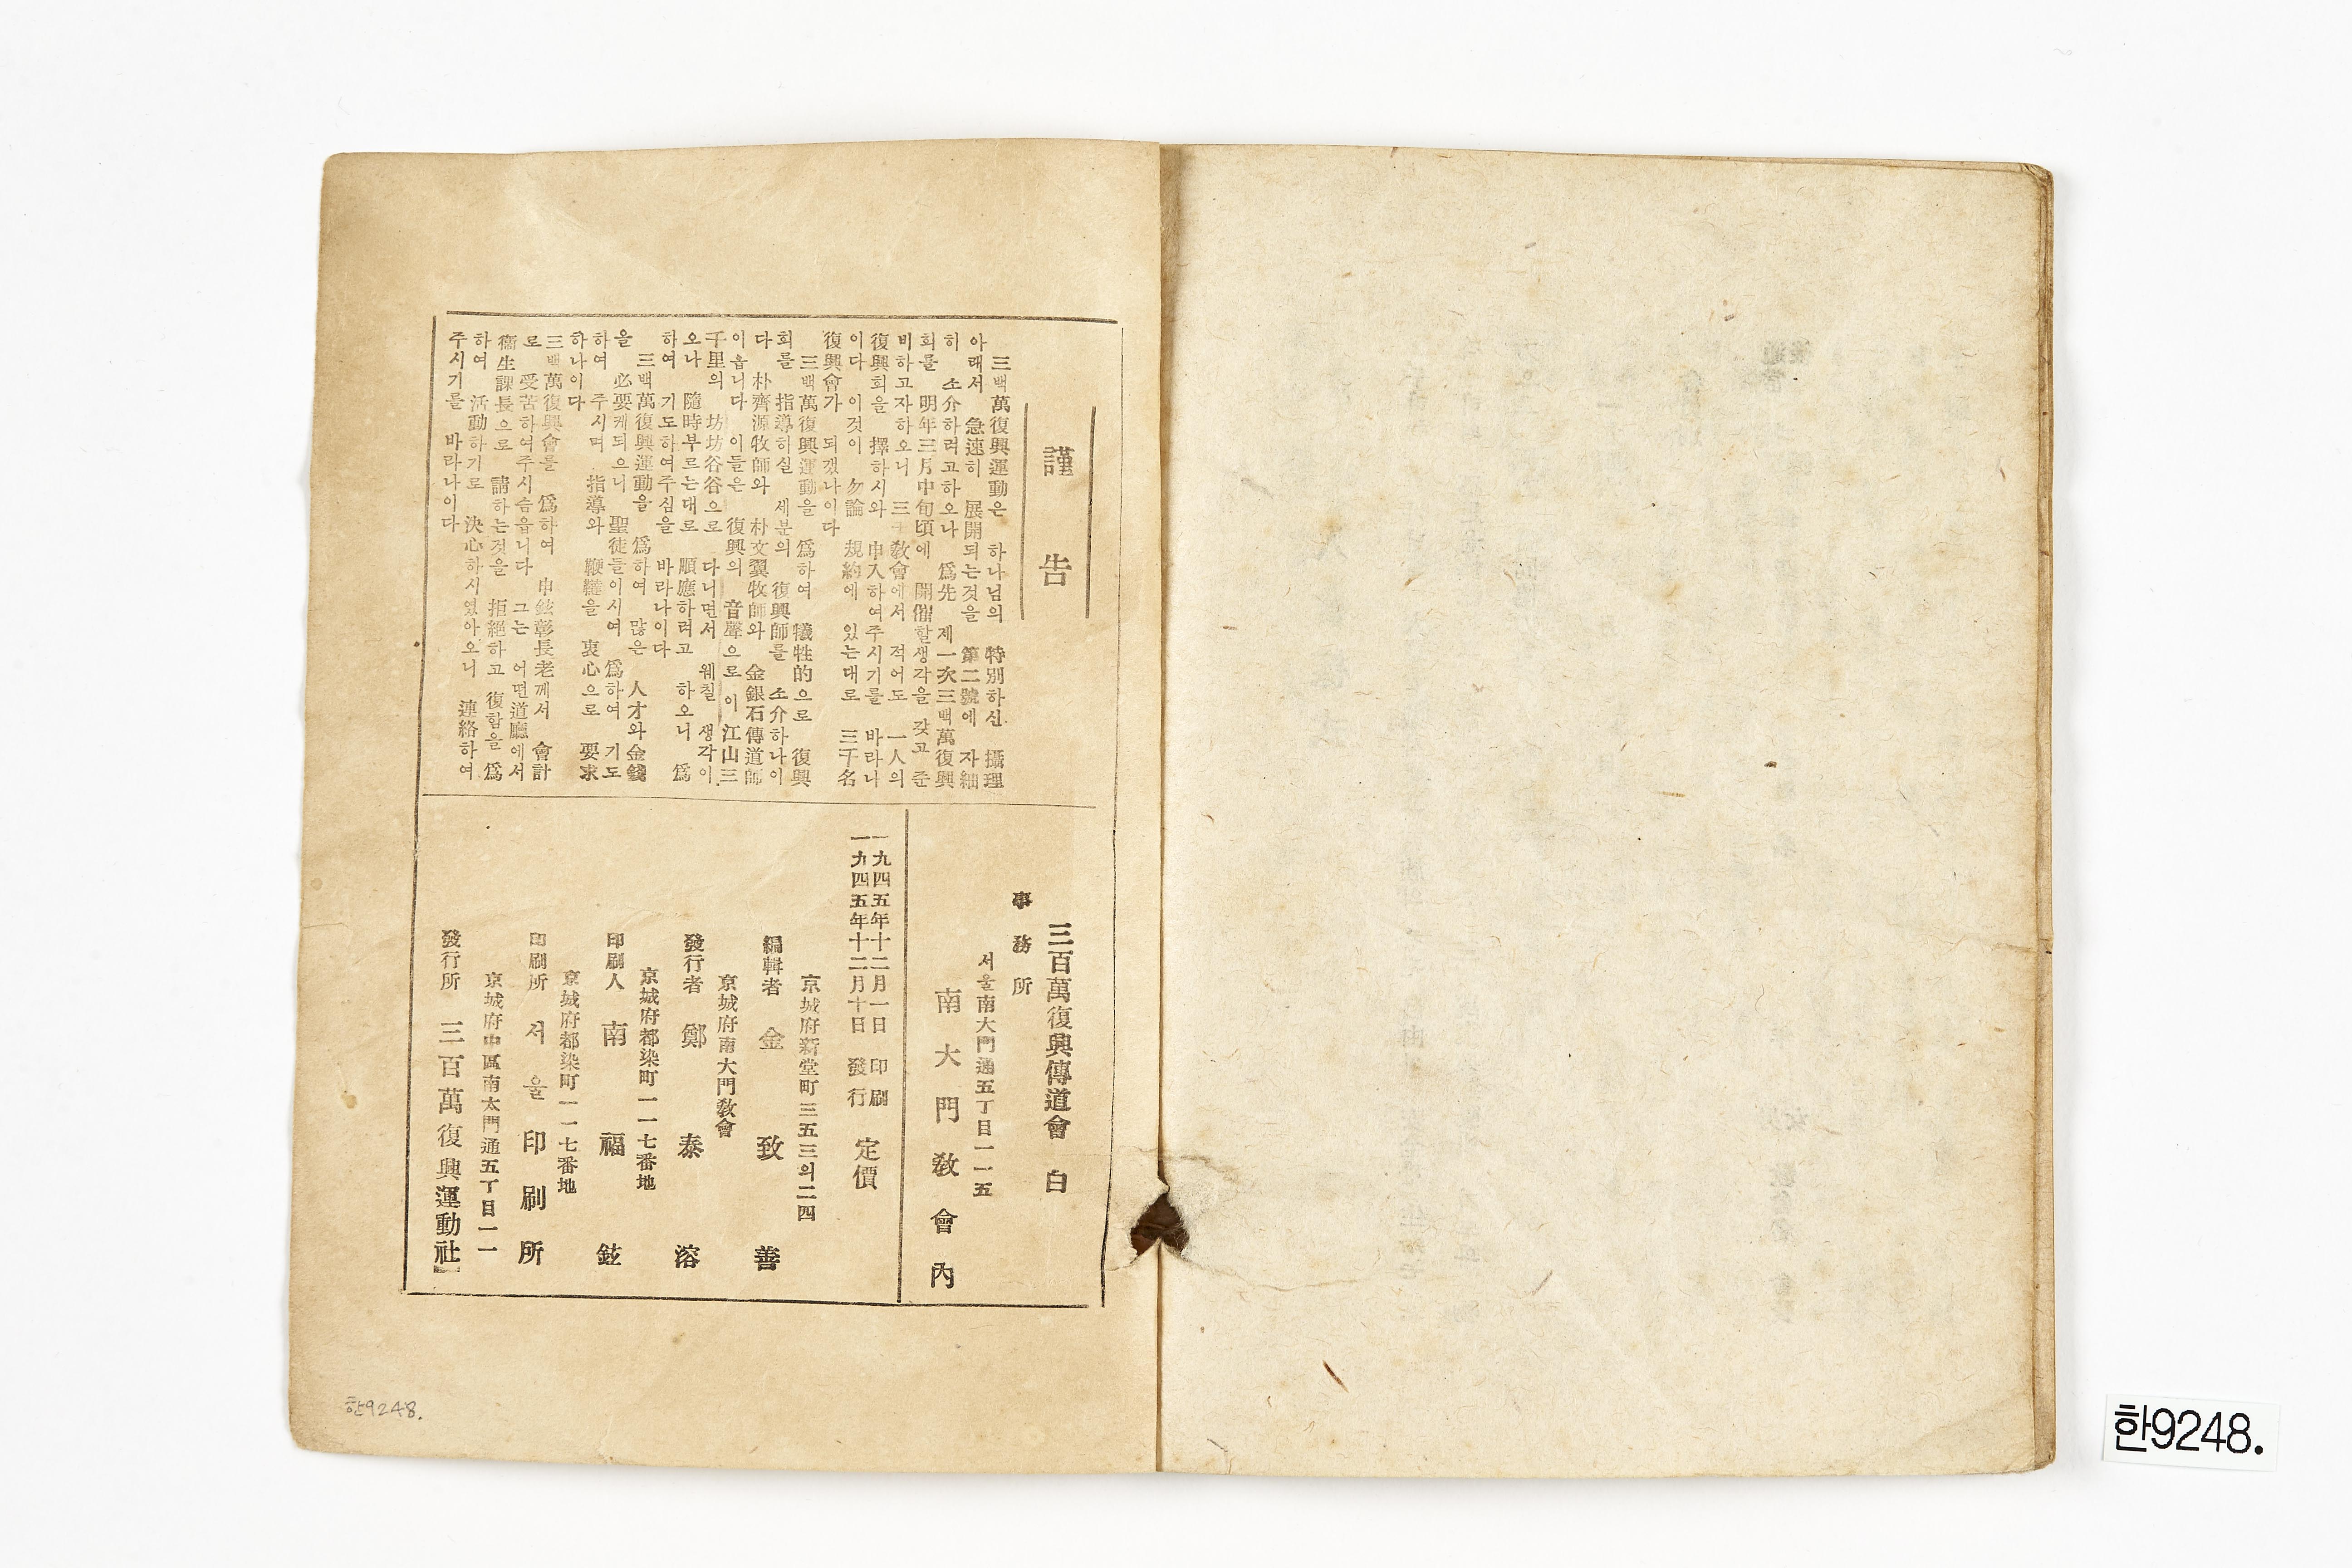 謹告
三백萬復興運動은 하나님의 特別하신 攝理
아래서 急速히 展開되는것을 第二號에 자細
히 소介하려고하오나 爲先 제一次三백萬復興
회를 明年三月中旬頃에 開催할생각을 갖고 준
비하고자하오니 三十敎會에서 적어도 一人의
復興회을 擇하시와 申入하여주시기를 바라나
이다 이것이 勿論 規約에 있는대로 三千名
復興會가 되겠나이다
三백萬復興運動을 爲하여 犧牲的으로 復興
회를 指導하실 세분의 復興師를 소介하나이
다 朴齊源牧師와 朴文翼牧師와 金銀石傳道師
이옵니다 이들은 復興의 音聲으로 이江山三
千里의 坊坊谷谷으로 다니면서 웨칠 생각이
오나 隨時부르는대로 順應하려고 하오니 爲
하여 기도하여주심을 바라나이다
三백萬復興運動을 爲하여 많은 人才와金錢
을 必要케되으니 聖徒들이시여 爲하여 기도
하여 주시며 指導와 鞭韃을 衷心으로 要求
하나이다
三백萬復興會를 爲하여 申鉉彰長老께서 會計
로 受苦하여주시슴읍니다 그는 어떤道廳에서
衞生課長으로 請하는것을 拒絕하고 復함을 爲
하여 活動하기로 決心하시였아오니 連絡하여
주시기를 바라나이다
三百萬復興傳道會 白
事務所
서울南大門通五丁目一一五
南大門敎會內
一九四五年十二月一日 印刷
一九四五年十二月十日 發行 定價
京城府新堂町三五三의二四
編輯者 金致善
京城府南大門敎會
發行者 鄭泰溶
京城府都染町一一七番地
印刷人 南福鉉
京城府都染町一一七番地
印刷所 서울印刷所
京城府中區南大門通五丁目一一
發行所 三百萬復興運動社
한9248.
한9248.